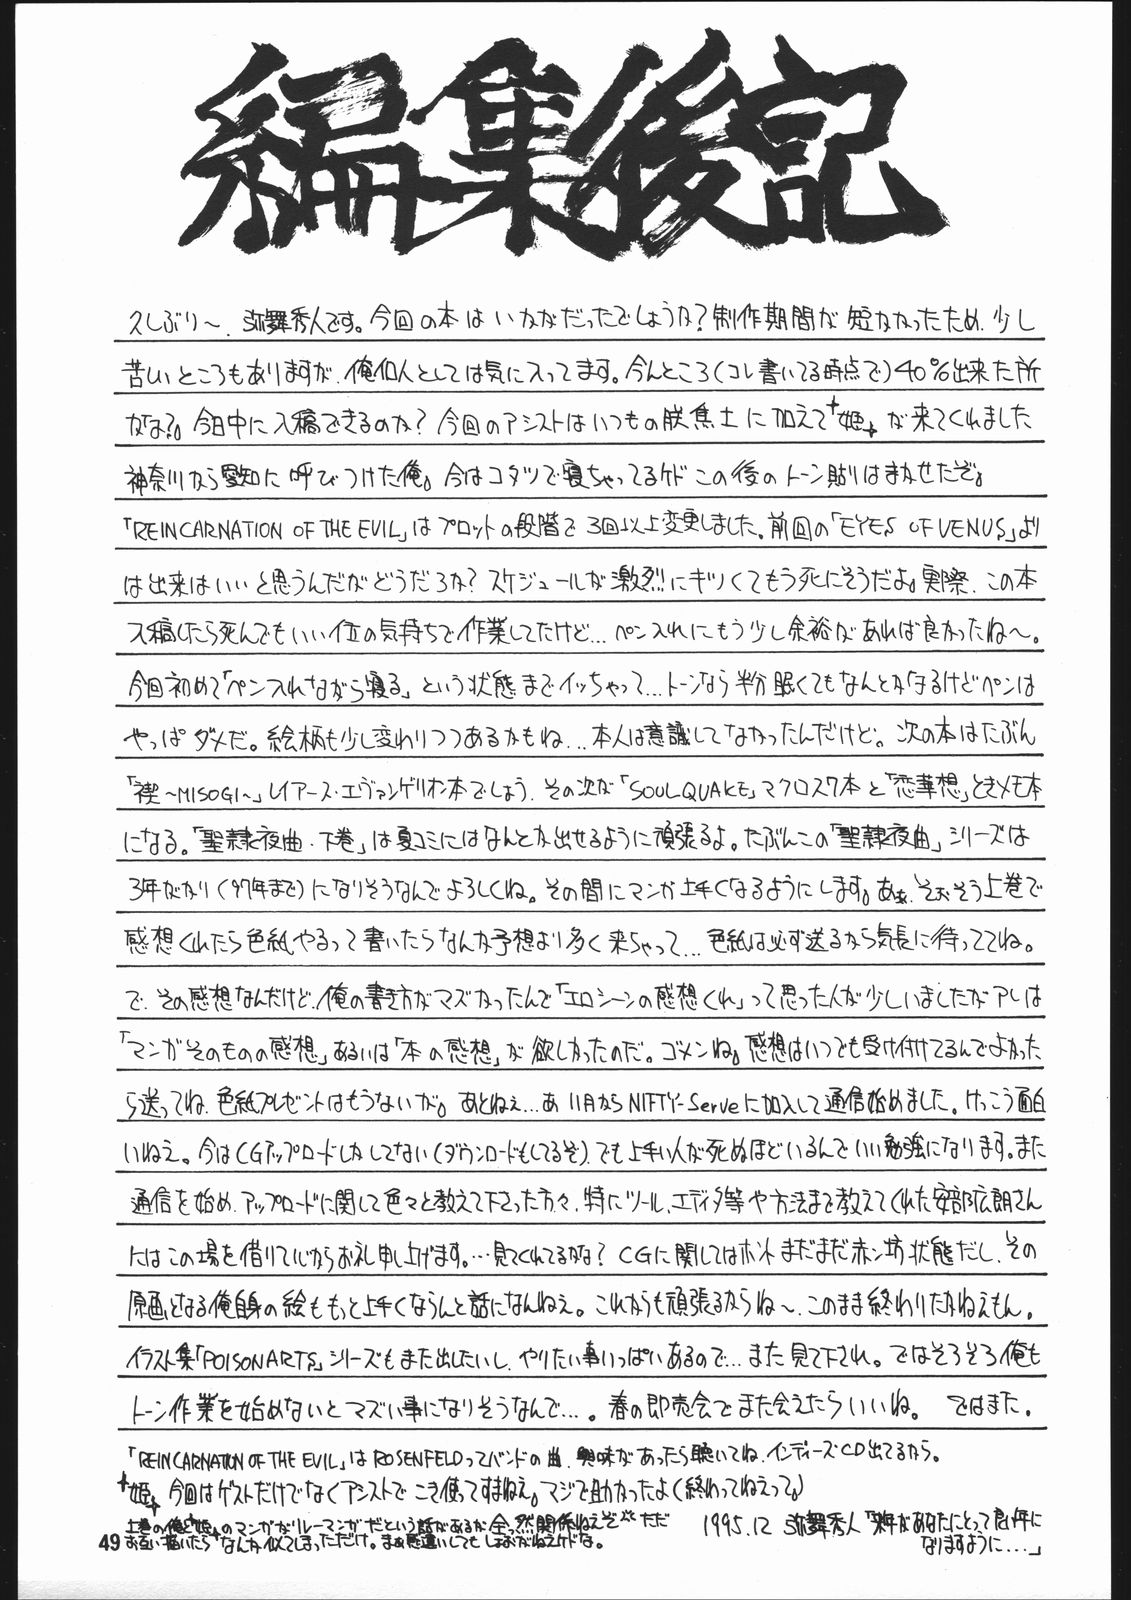 編集後記
久しぶり〜、弥舞秀人です。今回の本はいかがだったでしょうか?制作期間が短かかったため、少し
苦しいところもありますが、俺個人としては気に入ってます。今んところ(コレ書いてる時点で)40%出来た所
かな?。今日中に入稿できるのか?今回のアシストはいつもの朕焦土に加えて"姫"が来てくれました
神奈川から愛知に呼びつけた俺。今はコタツで寝ちゃってるケドこの後のトーン貼りはまかせたぞ。
「REINCARNATION OF THE EVIL」はプロットの段階で3回以上変更しました。前回の「EYES OF VENUS」より
は出来はいいと思うんだがどうだろな?スケジュールが激烈にキツくてもう死にそうだよ。実際、この本
入稿したら死んでもいい位の気持ちで作業してたけど…ペン入れにもう少し余裕があれば良かったね〜。
今回初めて「ペン入れながら寝る」という状態までイッちゃって…トーンなら半分眠くてもなんとかなるけどペンは
やっぱダメだ。絵柄も少し変わりつつあるかもね…本人は意識してなかったんだけど。次の本はたぶん
「禊〜MISOGI〜」レイアース・エヴァンゲリオン本でしょう、その次が「SOUL QUAKE」マクロス7本と「恋華想」ときメモ本
になる。「聖隷夜曲・下巻」は夏コミにはなんとか出せるように頑張るよ。たぶんこの「聖隷夜曲」シリーズは
3年がかり(97年まで)になりそうなんでよろしくね。その間にマンガ上手くなるようにします。あぁ、そおそう上巻で
感想くれたら色紙やるって書いたらなんか予想より多く来ちゃって…色紙は必ず送るから気長に待っててね。
で、その感想なんだけど、俺の書き方がマズかったんで「エロシーンの感想くれ」って思った人が少しいましたがアレは
「マンガそのものの感想」あるいは「本の感想」が欲しかったのだ。ゴメンね。感想はいつでも受け付けてるんでよかった
ら送ってね、色紙プレゼントはもうないが。あとねぇ…あ 11月からNIFTY-Serveに加入して通信始めました。けっこう面白
いねえ。今はCGアップロードしかしてない(ダウンロードもしてるぞ)、でも上手い人が死ぬほどいるんでいい勉強になります。また
通信を始め、アップロードに関して色々と教えて下さった方々、特にツール、エディタ等や方法まで教えてくれた安部広朗さん
にはこの場を借りて心からお礼申し上げます。…見てくれてるかな?CGに関してはホントまだまだ赤ン坊状態だし、その
原画となる俺自身の絵ももっと上手くならんと話になんねえ。これからも頑張るからね〜、このまま終わりたかねえもん。
イラスト集「POISON ARTS」シリーズもまた出したいし、やりたい事いっぱいあるので…また見て下され。ではそろそろ俺も
トーン作業を始めないとマズい事になりそうなんで…。春の即売会でまた会えたらいいね。ではまた。
「REINCARNATION OF THE EVIL」はROSENFELDってバンドの曲、興味があったら聴いてね、インディーズCD出てるから。
"姫"、今回はゲストだけでなくアシストでこき使ってすまねえ。マジで助かったよ(終わってねえって。)
上巻の俺と"姫"のマンガがリレーマンガだという話があるが全っ然関係ねえぞ ただ
お互い描いたらなんか似てしまっただけ。まぁ勘違いしてもしょおがねえけどな。
1995.12 弥舞秀人「来年があなたにとって良い年に
なりますように…」
49